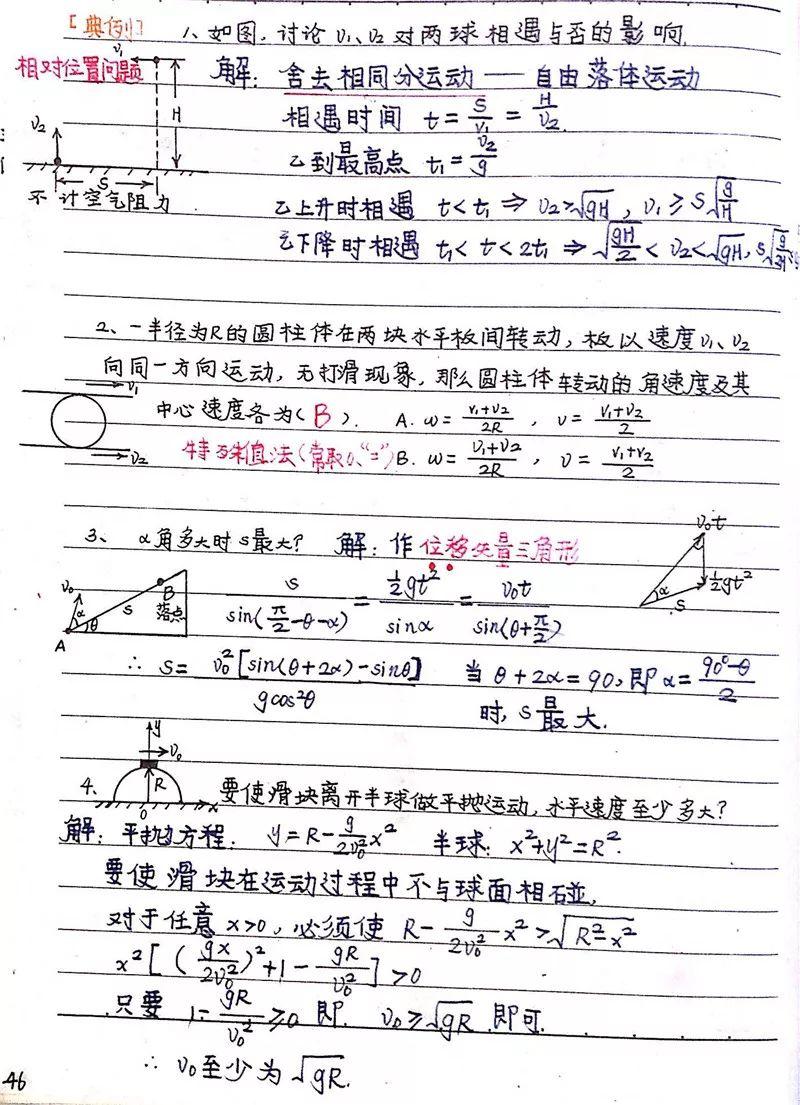 [典例] 1、如图,讨论 υ₁、υ₂ 对两球相遇与否的影响.
相对位置问题
υ₁
H
υ₂
S
不计空气阻力
解: 舍去相同分运动 — 自由落体运动
相遇时间 t = S/υ₁ = H/υ₂.
乙到最高点 t₁ = υ₂/g
乙上升时相遇 t < t₁ ⇒ υ₂ > √(gH), υ₁ ≥ S√(g/H)
乙下降时相遇 t₁ < t < 2t₁ ⇒ √(gH/2) < υ₂ < √(gH), S√(g/2H)
2、一半径为R的圆柱体在两块水平板间转动, 板以速度υ₁、υ₂
向同一方向运动, 无打滑现象, 那么圆柱体转动的角速度及其
υ₁
υ₂
中心速度各为(B). A. ω = (υ₁+υ₂)/2R , υ = (υ₁+υ₂)/2
特殊值法(常取0、"=") B. ω = (υ₁+υ₂)/2R , υ = (υ₁+υ₂)/2
3、 α角多大时s最大? 解: 作位移矢量三角形
υ₀
α
θ
A
s
B
落点
υ₀t
α
s
½gt²
s/sin(π/2-θ-α) = ½gt²/sinα = υ₀t/sin(θ+π/2)
∴ s = υ₀²[sin(θ+2α)-sinθ]/gcos²θ 当 θ+2α=90, 即 α = (90°-θ)/2
时, s最大.
y
υ₀
R
0
x
4、 要使滑块离开半球做平抛运动, 水平速度至少多大?
解: 平抛方程: y = R - g/2υ₀² x² 半球: x²+y²=R².
要使滑块在运动过程中不与球面相碰,
对于任意 x>0, 必须使 R - g/2υ₀² x² > √(R²-x²)
x²[(gx/2υ₀²)²+1-gR/υ₀²] > 0
只要 1-gR/υ₀² ≥ 0 即 υ₀ ≥ √(gR) 即可.
∴ υ₀至少为 √(gR).
46